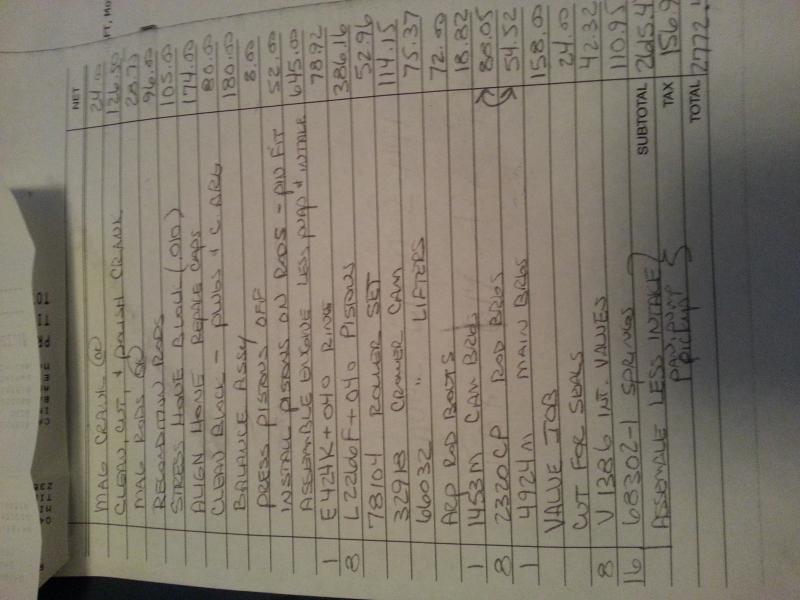 NET
MAG CRANK OK 24.00
CLEAN, CUT, + POLISH CRANK 126.50
MAG RODS OK
RECONDITION RODS 96.00
STRESS HONE BLOCK (.010) 105.00
ALIGN HONE REPLACE CAPS 174.00
CLEAN BLOCK - PLUGS + C. BRG 80.00
BALANCE ASSY 180.00
PRESS PISTONS OFF 8.00
INSTALL PISTONS ON RODS - PIN FIT 52.00
ASSEMBLE ENGINE LESS PUMP + INTAKE 645.00
1 E424K+040 RINGS 78.92
8 L2266F+040 PISTONS 386.16
78104 ROLLER SET 52.96
32918 CROWER CAM 114.15
66032 " LIFTERS 75.37
ARP ROD BOLTS 72.00
1 1453M CAM BRGS 18.82
8 2320CP ROD BRGS 80.05
1 4924M MAIN BRGS 54.52
VALVE JOB 158.00
CUT FOR SEALS 24.00
8 V1386 INT. VALVES 42.32
16 68302-1 SPRINGS 110.95
ASSEMBLE LESS INTAKE, PAN, PUMP, pickup
SUBTOTAL 2615.4
TAX 156.9
TOTAL 2772.